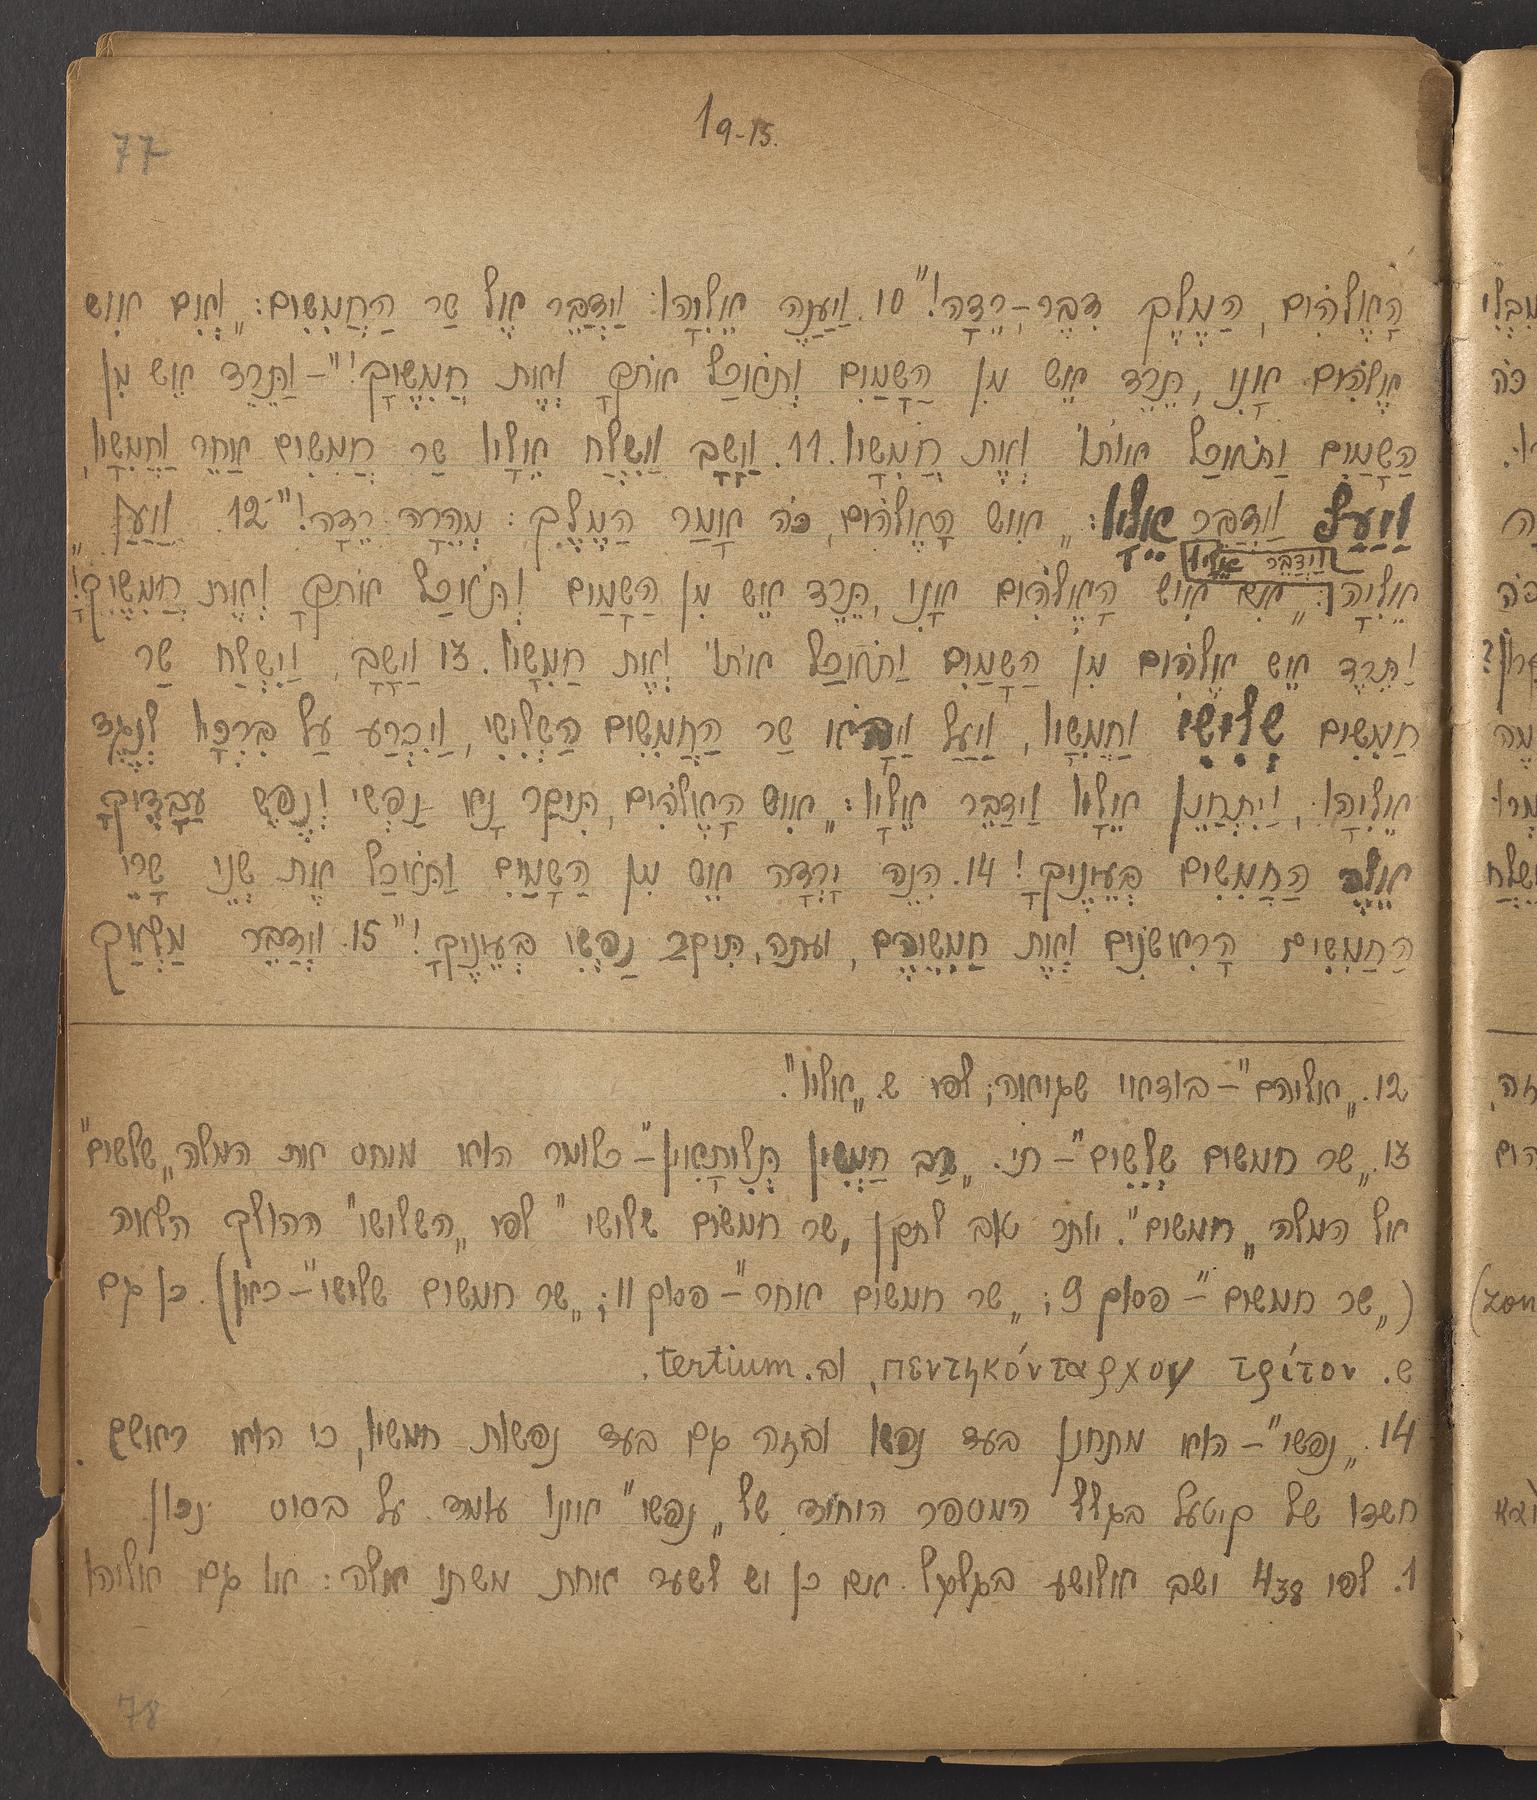 77
1 9-15.
הָאֱלֹהִים, הַמֶּלֶךְ דִבֶּר–רֵדָה!" 10. וַיַּעֲנֶה אֵלִיָּהוּ וַיְדַבֵּר אֶל שַׂר הַחֲמִשִּׁים: „וְאִם אִישׁ
אֱלֹהִים אָנִי, תֵּרֶד אֵשׁ מִן הַשָּׁמַיִם וְתֹאכַל אֹתְךָ וְאֶת חֲמִשֶּׁיךָ!"– וַתֵּרֶד אֵשׁ מִן
הַשָּׁמַיִם וַתֹּאכַל אוֹתוֹ וְאֶת חֲמִשָּׁיו. 11. וַיָּשָׁב וַיִּשְׁלַח אֵלָיו שַׂר חֲמִשִּׁים אַחֵר וַחֲמִשָּׁיו,
וַיַּעַל וַיְדַבֵּר אֵלָיו: „אִישׁ הָאֱלֹהִים, כֹּה אָמַר הַמֶּלֶךְ: מְהֵרָה רֵדָה!" 12. וַיַּעַן
וַיְדַבֵּר אֵלָיו
אֵלִיָּה: „אִם אִישׁ הָאֱלֹהִים אָנִי, תֵּרֶד אֵשׁ מִן הַשָּׁמַיִם וְתֹאכַל אֹתְךָ וְאֶת חֲמִשֶּׁיךָ!"
וַתֵּרֶד אֵשׁ אֱלֹהִים מִן הַשָּׁמַיִם וַתֹּאכַל אוֹתוֹ וְאֶת חֲמִשָּׁיו. 13 וַיָּשָׁב, וַיִּשְׁלַח שַׂר
חֲמִשִּׁים שְׁלִישִׁי וַחֲמִשָּׁיו, וַיַּעַל וַיָּבֹא שַׂר הַחֲמִשִּׁים הַשְּׁלִישִׁי, וַיִּכְרַע עַל בִּרְכָּיו לְנֶגֶד
אֵלִיָּהוּ, וַיִּתְחַנֵּן אֵלָיו וַיְדַבֵּר אֵלָיו: „אִישׁ הָאֱלֹהִים, תִּיקַר נָא נַפְשִׁי וְנֶפֶשׁ עֲבָדֶיךָ
אֵלֶּה הַחֲמִשִּׁים בְּעֵינֶיךָ! 14. הִנֵּה יָרְדָה אֵשׁ מִן הַשָּׁמַיִם וַתֹּאכַל אֶת שְׁנֵי שָׂרֵי
הַחֲמִשִּׁים הָרִאשֹׁנִים וְאֶת חֲמִשֵּׁיהֶם, ועתה, תִּיקַר נַפְשִׁי בְּעֵינֶיךָ!" 15. וַיְדַבֵּר מַלְאַךְ
12. „אליהם"– בודאי שגיאה; לפי ש. „אליו".
13. „שר חמשים שְׁלִשִׁים"– תי. „רַב חַמְשִׁין תְּלִיתָאִין"– כלומר הוא מיחס את המלה „שלשים"
אל המלה „חמשים". יותר טוב לתקן „שר חמשים שלישי" לפי „השלישי" ההולך הלאה
(„שר חמשים"– פסוק 9; „שר חמשים אחר"– פסוק 11; „שר חמשים שלישי"– כאן). כן גם
ש. πεντηκόνταρχον τρίτον, וב. tertium.
14. „נפשי"– הוא מתחנן בעד נפשו ובזה גם בעד נפשות חמשיו, כי הוא ראשם.
חשדו של קיטעל בגלל המספר היחיד של „נפשי" אינו עומד על בסיס נכון
1. לפי 4 38 ישב אלישע בגלגל. אם כן יש לשער אחת משתי אלה: או גם אליהו
78